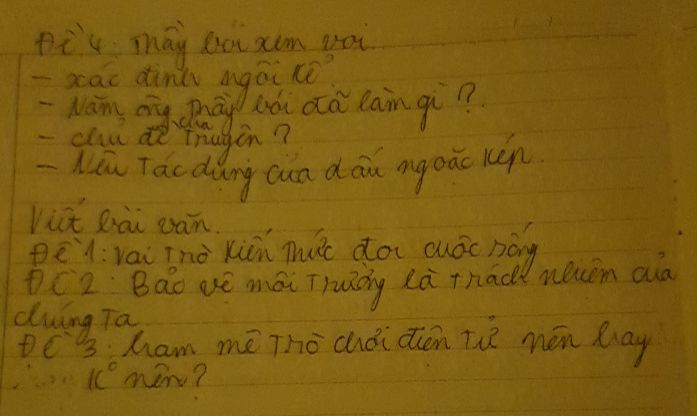 Đề 4: Thầy bói xem voi
- xác định ngôi kể
- Năm ông thầy bói đã làm gì?
- chủ đề của Truyện?
- Nêu Tác dụng của dấu ngoặc kép.
Viết bài văn.
Đề 1: vai Trò Kiến Thức đối cuộc sống
Đề 2: Bảo vệ môi Trường là trách nhiệm của
chúng Ta
Đề 3: ham mê Trò chơi điện Tử nên hay
K° nên?